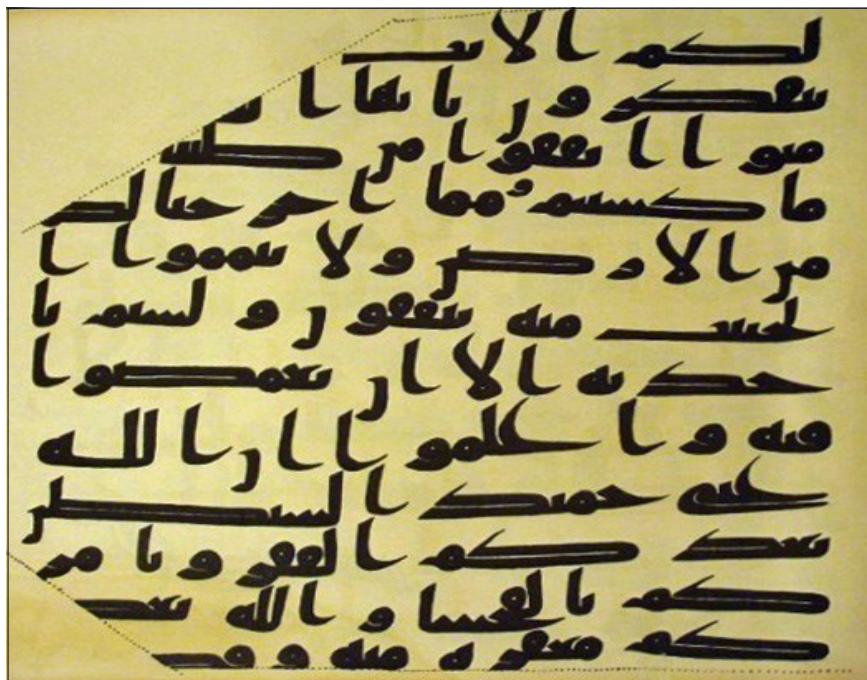 لكم الايت
تتفكرون يايها ا
منوا انفقوا من طيب
ما كسبتم ومما اخرجنا لك
من الارض ولا تيمموا ا
لخبيث منه تنفقون ولستم با
خذيه الا ان تغمضوا
فيه واعلموا ان الله
غني حميد الشيطن
يعدكم الفقر ويامر
كم بالفحشا والله يعد
كم مغفره منه وفض